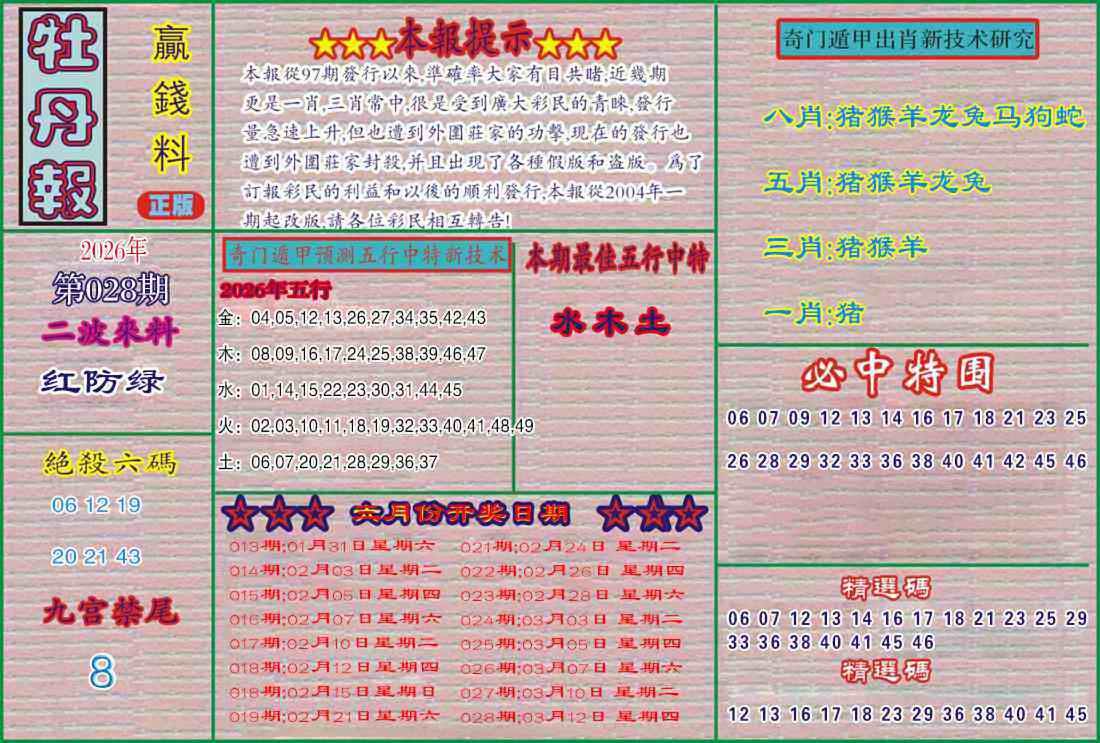 牡丹報
贏錢料
正版
2026年
第028期
二波來料
红防绿
絕殺六碼
06 12 19
20 21 43
九宫禁尾
8
★★★本報提示★★★
本報從97期發行以來,準確率大家有目共睹,近幾期
更是一肖,三肖常中,很是受到廣大彩民的青睞,發行
量急速上升,但也遭到外圍莊家的功擊,現在的發行也
遭到外圍莊家封殺,并且出現了各種假版和盜版。爲了
訂報彩民的利益和以後的順利發行,本報從2004年一
期起改版,請各位彩民相互轉告!
奇门遁甲预测五行中特新技术
2026年五行
金：04,05,12,13,26,27,34,35,42,43
木：08,09,16,17,24,25,38,39,46,47
水：01,14,15,22,23,30,31,44,45
火：02,03,10,11,18,19,32,33,40,41,48,49
土：06,07,20,21,28,29,36,37
本期最佳五行中特
水木土
☆☆☆ 六月份开奖日期 ☆☆☆
013期;01月31日星期六 021期;02月24日 星期二
014期;02月03日星期二 022期;02月26日 星期四
015期;02月05日星期四 023期;02月28日 星期六
016期;02月07日星期六 024期;03月03日 星期二
017期;02月10日星期二 025期;03月05日 星期四
018期;02月12日星期四 026期;03月07日 星期六
018期;02月15日星期日 027期;03月10日 星期二
019期;02月21日星期六 028期;03月12日 星期四
奇门遁甲出肖新技术研究
八肖:猪猴羊龙兔马狗蛇
五肖:猪猴羊龙兔
三肖:猪猴羊
一肖:猪
必中特围
06 07 09 12 13 14 16 17 18 21 23 25
26 28 29 32 33 36 38 40 41 42 45 46
精選碼
06 07 12 13 14 16 17 18 21 23 25 29
33 36 38 40 41 45 46
精選碼
12 13 16 17 18 23 29 36 38 40 41 45